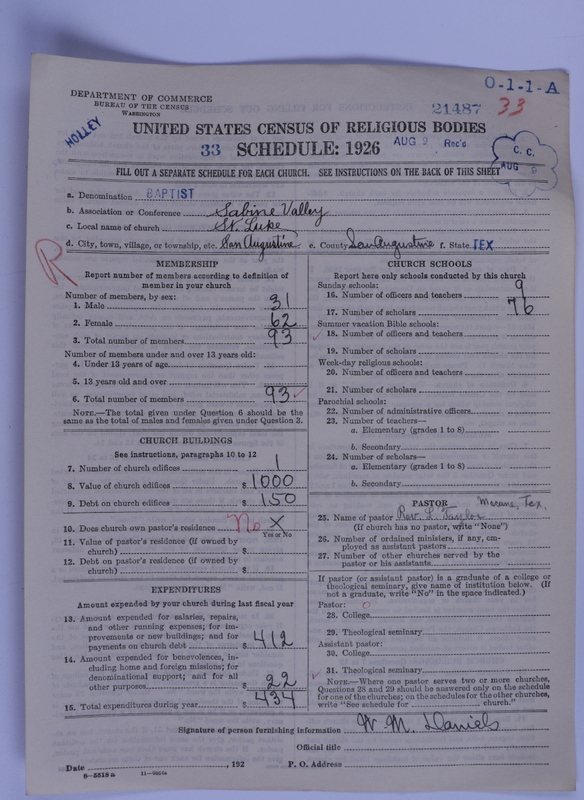 O-1-1-A
DEPARTMENT OF COMMERCE
BUREAU OF THE CENSUS
WASHINGTON
21487 33
HOLLEY
UNITED STATES CENSUS OF RELIGIOUS BODIES
33 SCHEDULE: 1926 AUG 9 Rec'd
C. C.
AUG 9
FILL OUT A SEPARATE SCHEDULE FOR EACH CHURCH. SEE INSTRUCTIONS ON THE BACK OF THIS SHEET
a. Denomination BAPTIST
b. Association or Conference Sabine Valley
c. Local name of church St. Luke
d. City, town, village, or township, etc. San Augustine e. County San Augustine f. State TEX
R
MEMBERSHIP
Report number of members according to definition of
member in your church
Number of members, by sex:
1. Male 31
2. Female 62
3. Total number of members 93
Number of members under and over 13 years old:
4. Under 13 years of age
5. 13 years old and over
6. Total number of members 93
NOTE.—The total given under Question 6 should be the
same as the total of males and females given under Question 3.
CHURCH BUILDINGS
See instructions, paragraphs 10 to 12
7. Number of church edifices 1
8. Value of church edifices $ 1000
9. Debt on church edifices $ 150
10. Does church own pastor's residence No X
Yes or No
11. Value of pastor's residence (if owned by
church) $
12. Debt on pastor's residence (if owned by
church) $
EXPENDITURES
Amount expended by your church during last fiscal year
13. Amount expended for salaries, repairs,
and other running expenses; for im-
provements or new buildings; and for
payments on church debt $ 412
14. Amount expended for benevolences, in-
cluding home and foreign missions; for
denominational support; and for all
other purposes $ 22
15. Total expenditures during year $ 434
CHURCH SCHOOLS
Report here only schools conducted by this church
Sunday schools:
16. Number of officers and teachers 9
17. Number of scholars 76
Summer vacation Bible schools:
18. Number of officers and teachers
19. Number of scholars
Week-day religious schools:
20. Number of officers and teachers
21. Number of scholars
Parochial schools:
22. Number of administrative officers
23. Number of teachers—
a. Elementary (grades 1 to 8)
b. Secondary
24. Number of scholars—
a. Elementary (grades 1 to 8)
b. Secondary
PASTOR Tex.
25. Name of pastor Rev. L. Taylor
(If church has no pastor, write "None")
26. Number of ordained ministers, if any, em-
ployed as assistant pastors
27. Number of other churches served by the
pastor or his assistants
If pastor (or assistant pastor) is a graduate of a college or
theological seminary, give name of institution below. (If
not a graduate, write "No" in the space indicated.)
Pastor: 0
28. College
29. Theological seminary
Assistant pastor:
30. College
31. Theological seminary
NOTE.—Where one pastor serves two or more churches,
Questions 28 and 29 should be answered only on the schedule
for one of the churches; on the schedules for the other churches,
write "See schedule for church."
Signature of person furnishing information W. M. Daniels
Official title
Date , 192 P. O. Address
8-5518a 11-9884a